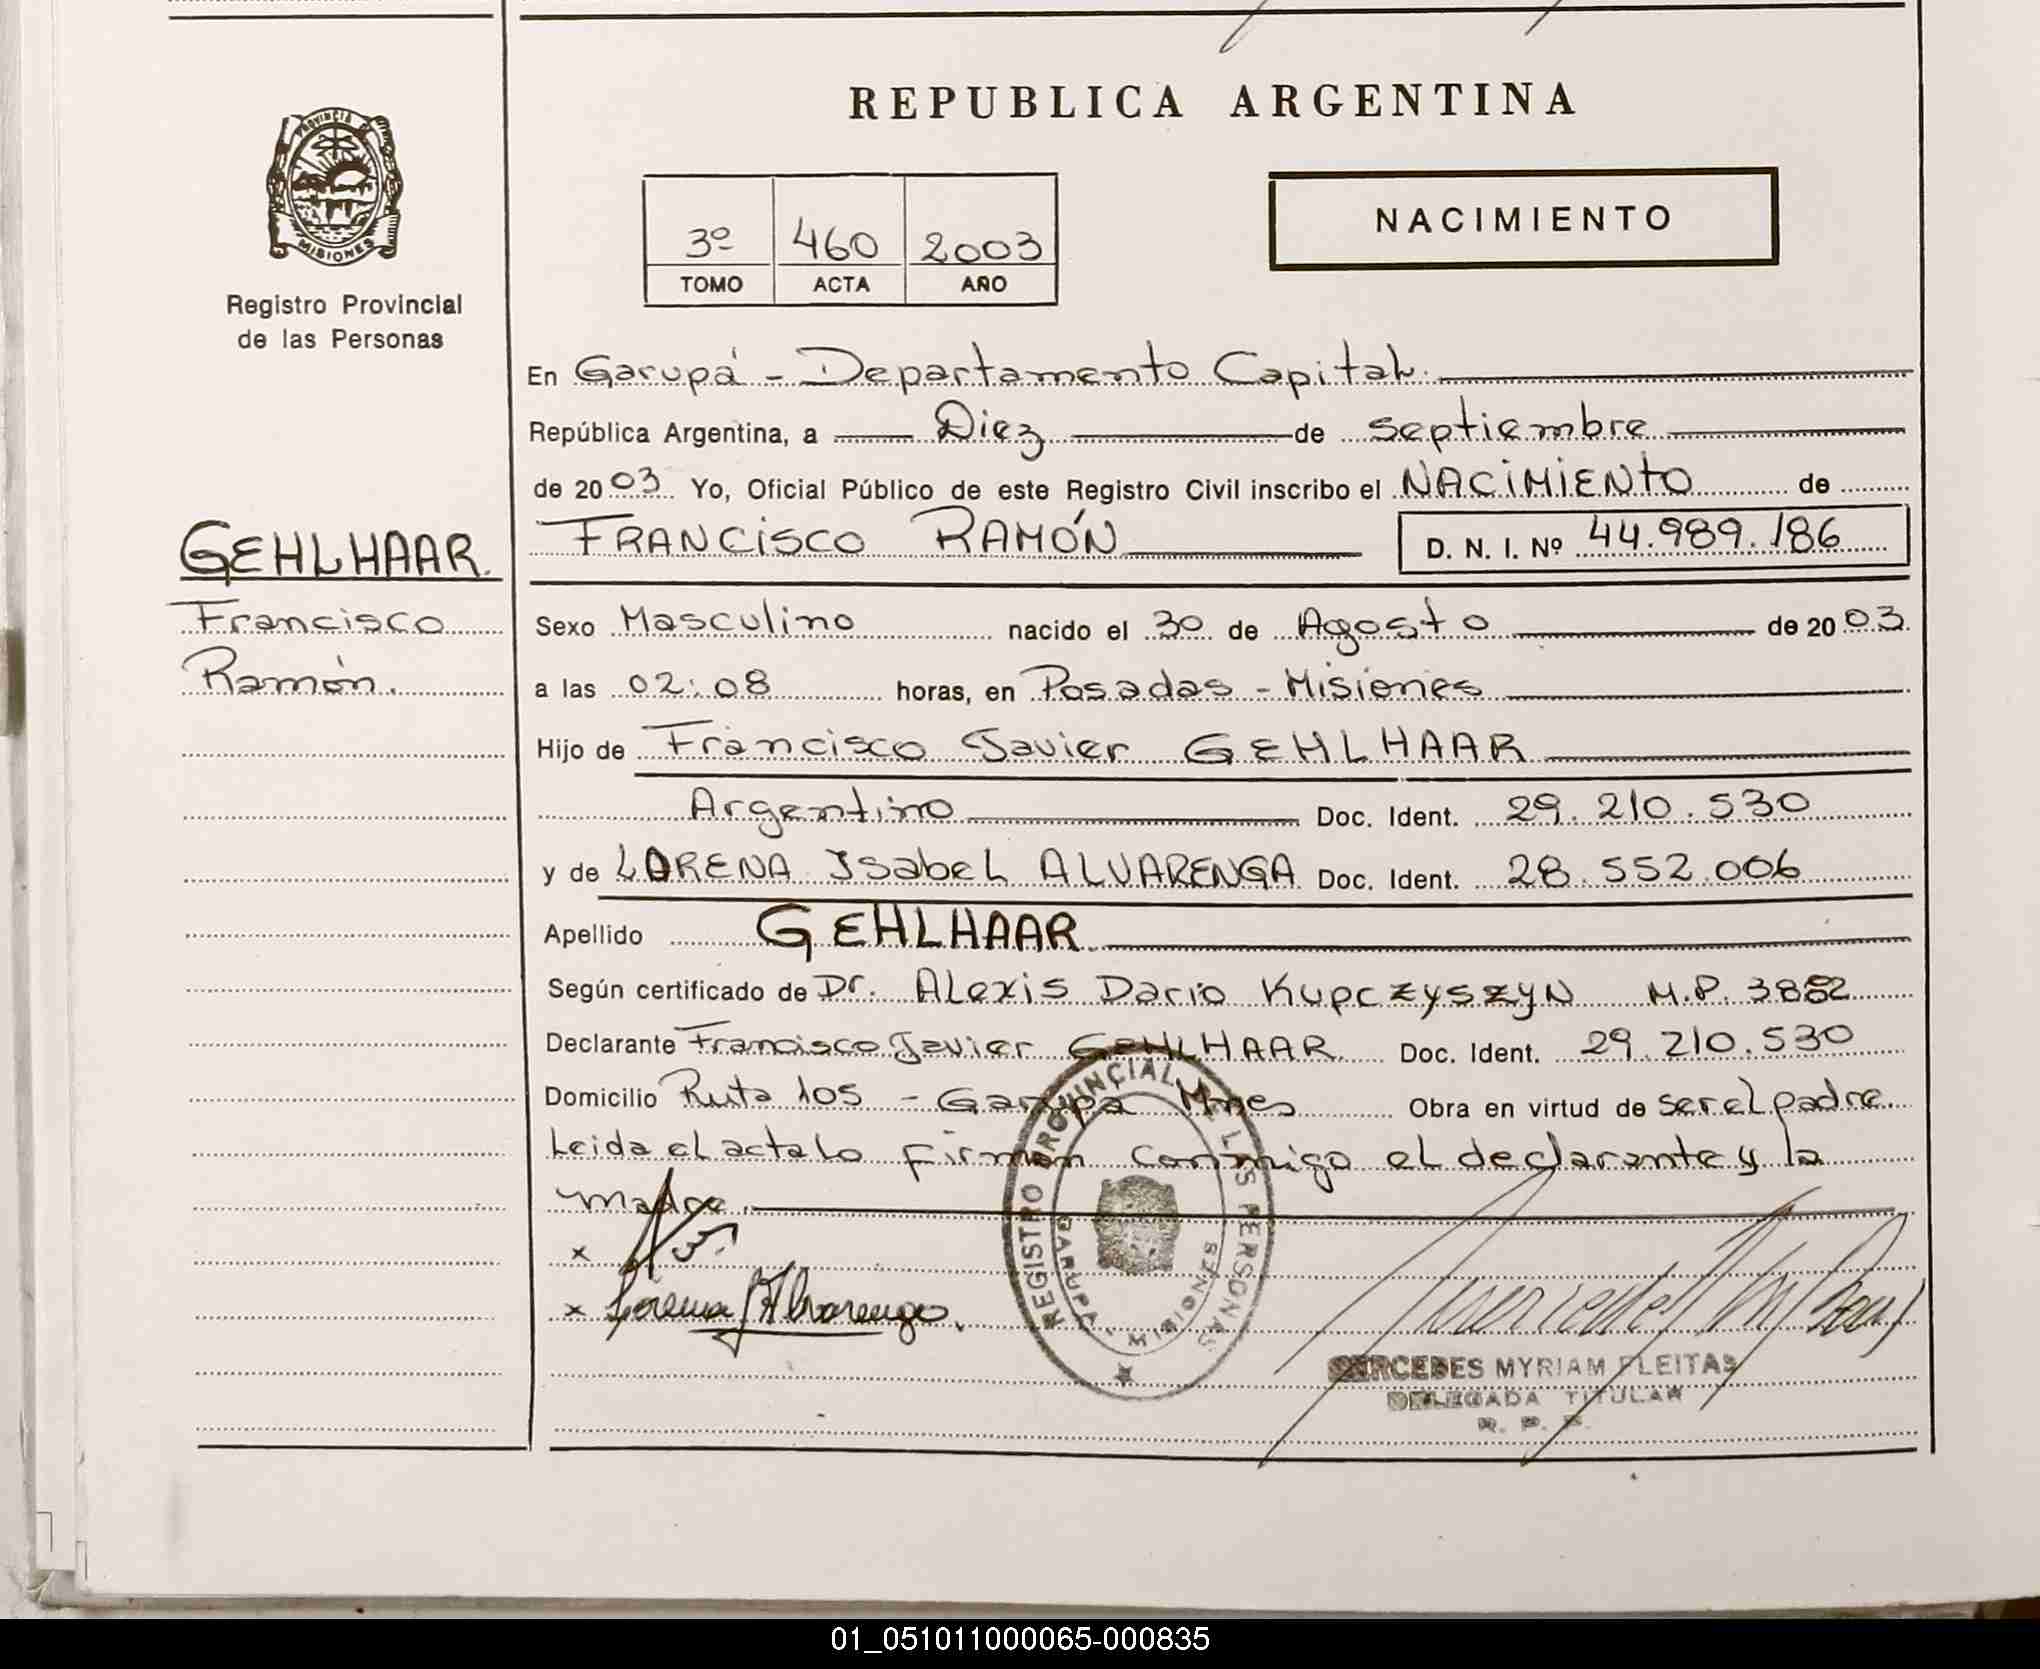 REPUBLICA ARGENTINA
PROVINCIA DE
MISIONES
Registro Provincial
de las Personas
3º 460 2003
TOMO ACTA AÑO
NACIMIENTO
En Garupá - Departamento Capital.
República Argentina, a Diez de septiembre
de 2003 Yo, Oficial Público de este Registro Civil inscribo el NACIMIENTO de
FRANCISCO RAMÓN D. N. I. Nº 44.989.186
GEHLHAAR.
Francisco
Ramón.
Sexo Masculino nacido el 30 de Agosto de 2003.
a las 02:08 horas, en Posadas - Misiones
Hijo de Francisco Javier GEHLHAAR
Argentino Doc. Ident. 29.210.530
y de LORENA Isabel ALVARENGA Doc. Ident. 28.552.006
Apellido GEHLHAAR
Según certificado de Dr. Alexis Dario Kupczyszyn M.P. 3882
Declarante Francisco Javier GEHLHAAR Doc. Ident. 29.210.530
Domicilio Ruta 105 - Garupa Mnes Obra en virtud de ser el padre.
Leida el acta lo firman conmigo el declarante y la
madre.
x
x Lorena I Alvarenga.
REGISTRO PROVINCIAL DE LAS PERSONAS
GARUPA - MISIONES
MERCEDES MYRIAM FLEITAS
DELEGADA TITULAR
R. P. P.
01_051011000065-000835